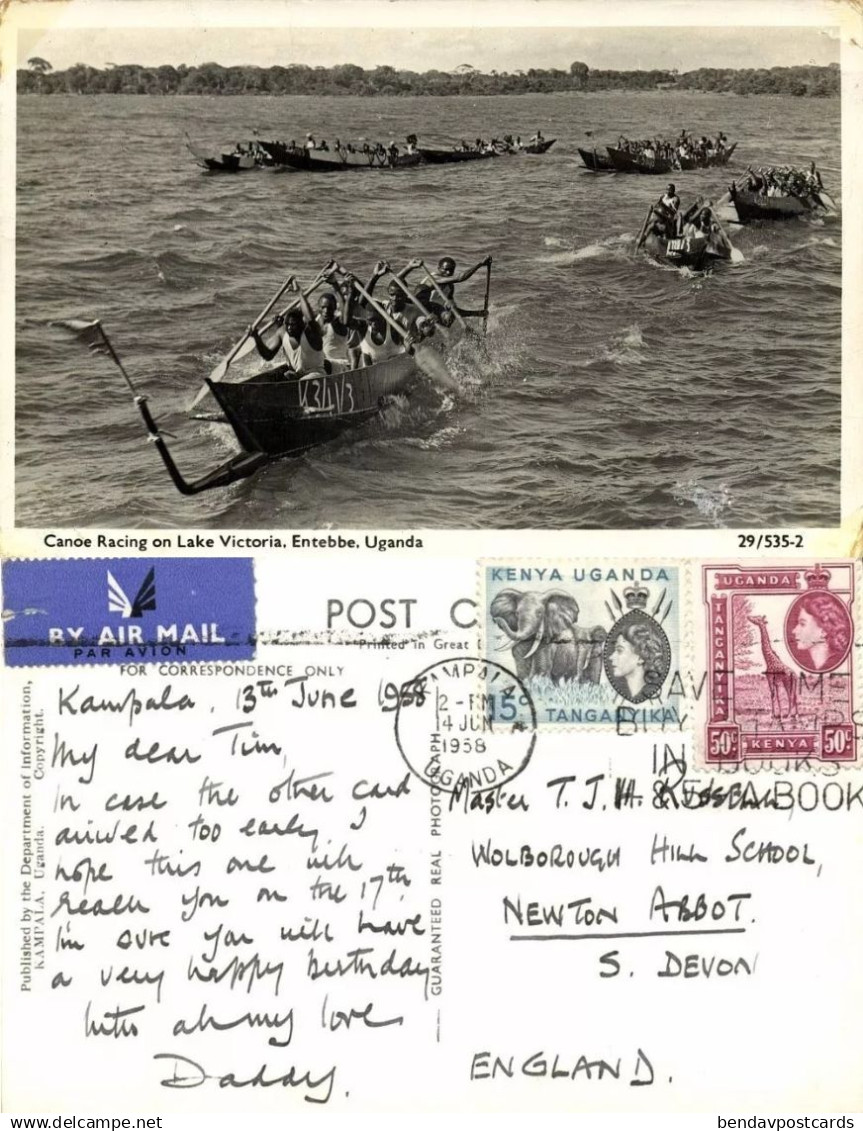 V3/1/3
Canoe Racing on Lake Victoria, Entebbe, Uganda
29/535-2
BY AIR MAIL
PAR AVION
POST C
Printed in Great
FOR CORRESPONDENCE ONLY
KENYA UGANDA
15c
TANGANYIKA
UGANDA
TANGANYIKA
50c KENYA 50c
KAMPALA
2-PM
4 JUN
1958
UGANDA
SAVE TIME
BUY STAMPS
IN BOOKS
A BOOK
Published by the Department of Information,
KAMPALA, Uganda. Copyright.
GUARANTEED REAL PHOTOGRAPH
Kampala, 13th June 1958
My dear Tim,
In case the other card
arrived too early, I
hope this one will
reach you on the 17th.
I'm sure you will have
a very happy birthday
With all my love
Daddy.
Master T. J. H.
WOLBOROUGH HILL SCHOOL,
NEWTON ABBOT.
S. DEVON
ENGLAND.
bendavpostcards